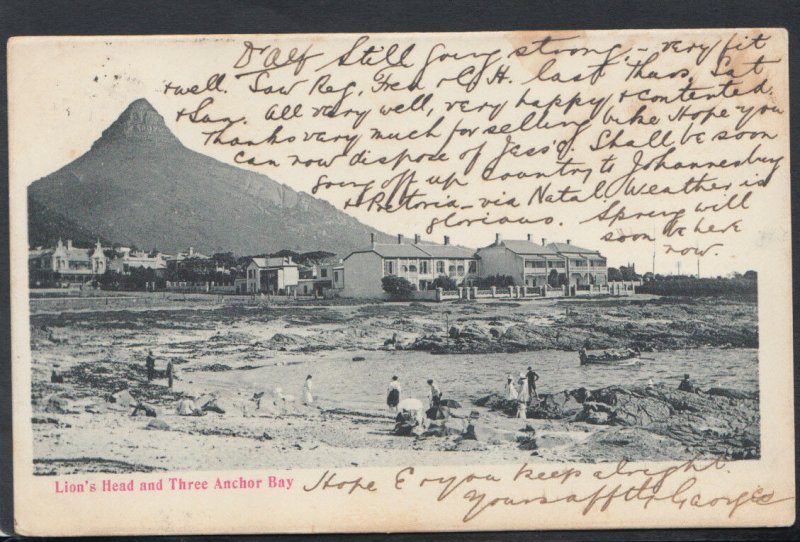 Dr Alf Still going strong, - very fit
& well. Saw Reg, Fred & C. H. last Thurs, Sat
& Sun. All very well, very happy & contented.
Thanks very much for selling bike Hope you
can now dispose of Jess's. Shall be soon
going off up country to Johannesburg
& Pretoria - via Natal Weather is
glorious. Spring will
soon be here
now.
Lion's Head and Three Anchor Bay
Hope E & you keep alright
Yours afftly George